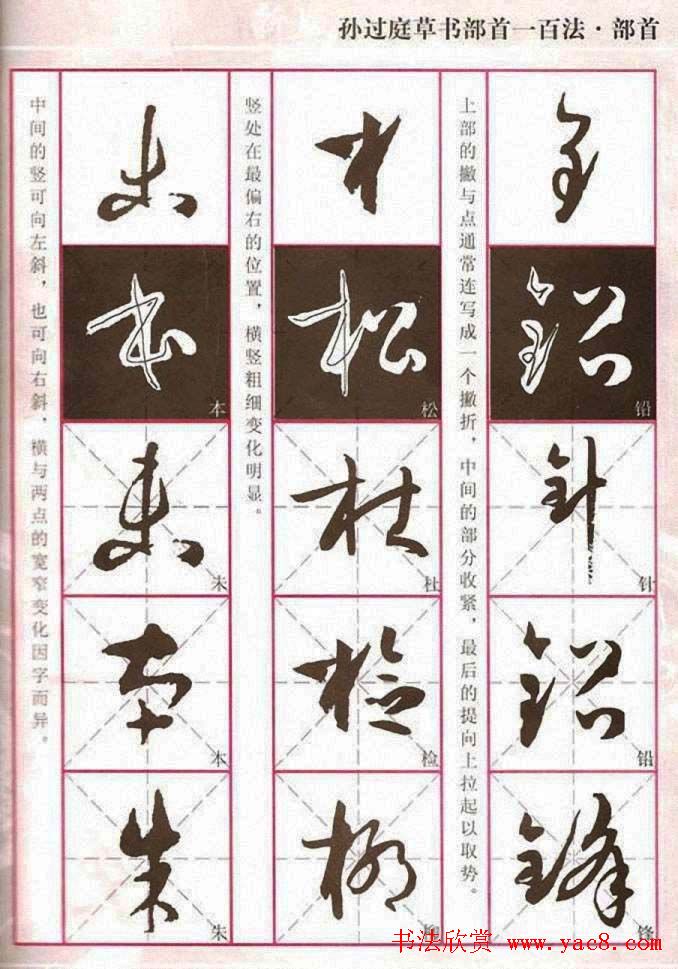 孙过庭草书部首一百法·部首
上部的撇与点通常连写成一个撇折，中间的部分收紧，最后的提向上拉起以取势。
铅
针
铅
锋
竖处在最偏右的位置，横竖粗细变化明显。
松
杜
检
柳
中间的竖可向左斜，也可向右斜，横与两点的宽窄变化因字而异。
本
本
朱
书法欣赏 www.yac8.com